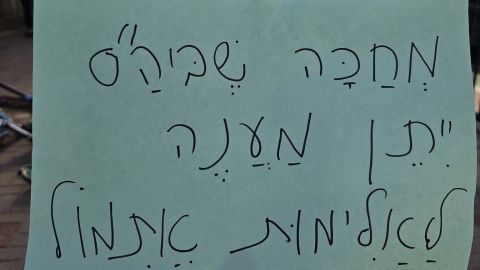 מְחַכָּה שֶׁבֵּיהַ"ס
יִתֵּן מַעֲנֶה
לָאַלִּימוּת אֶתְמוֹל